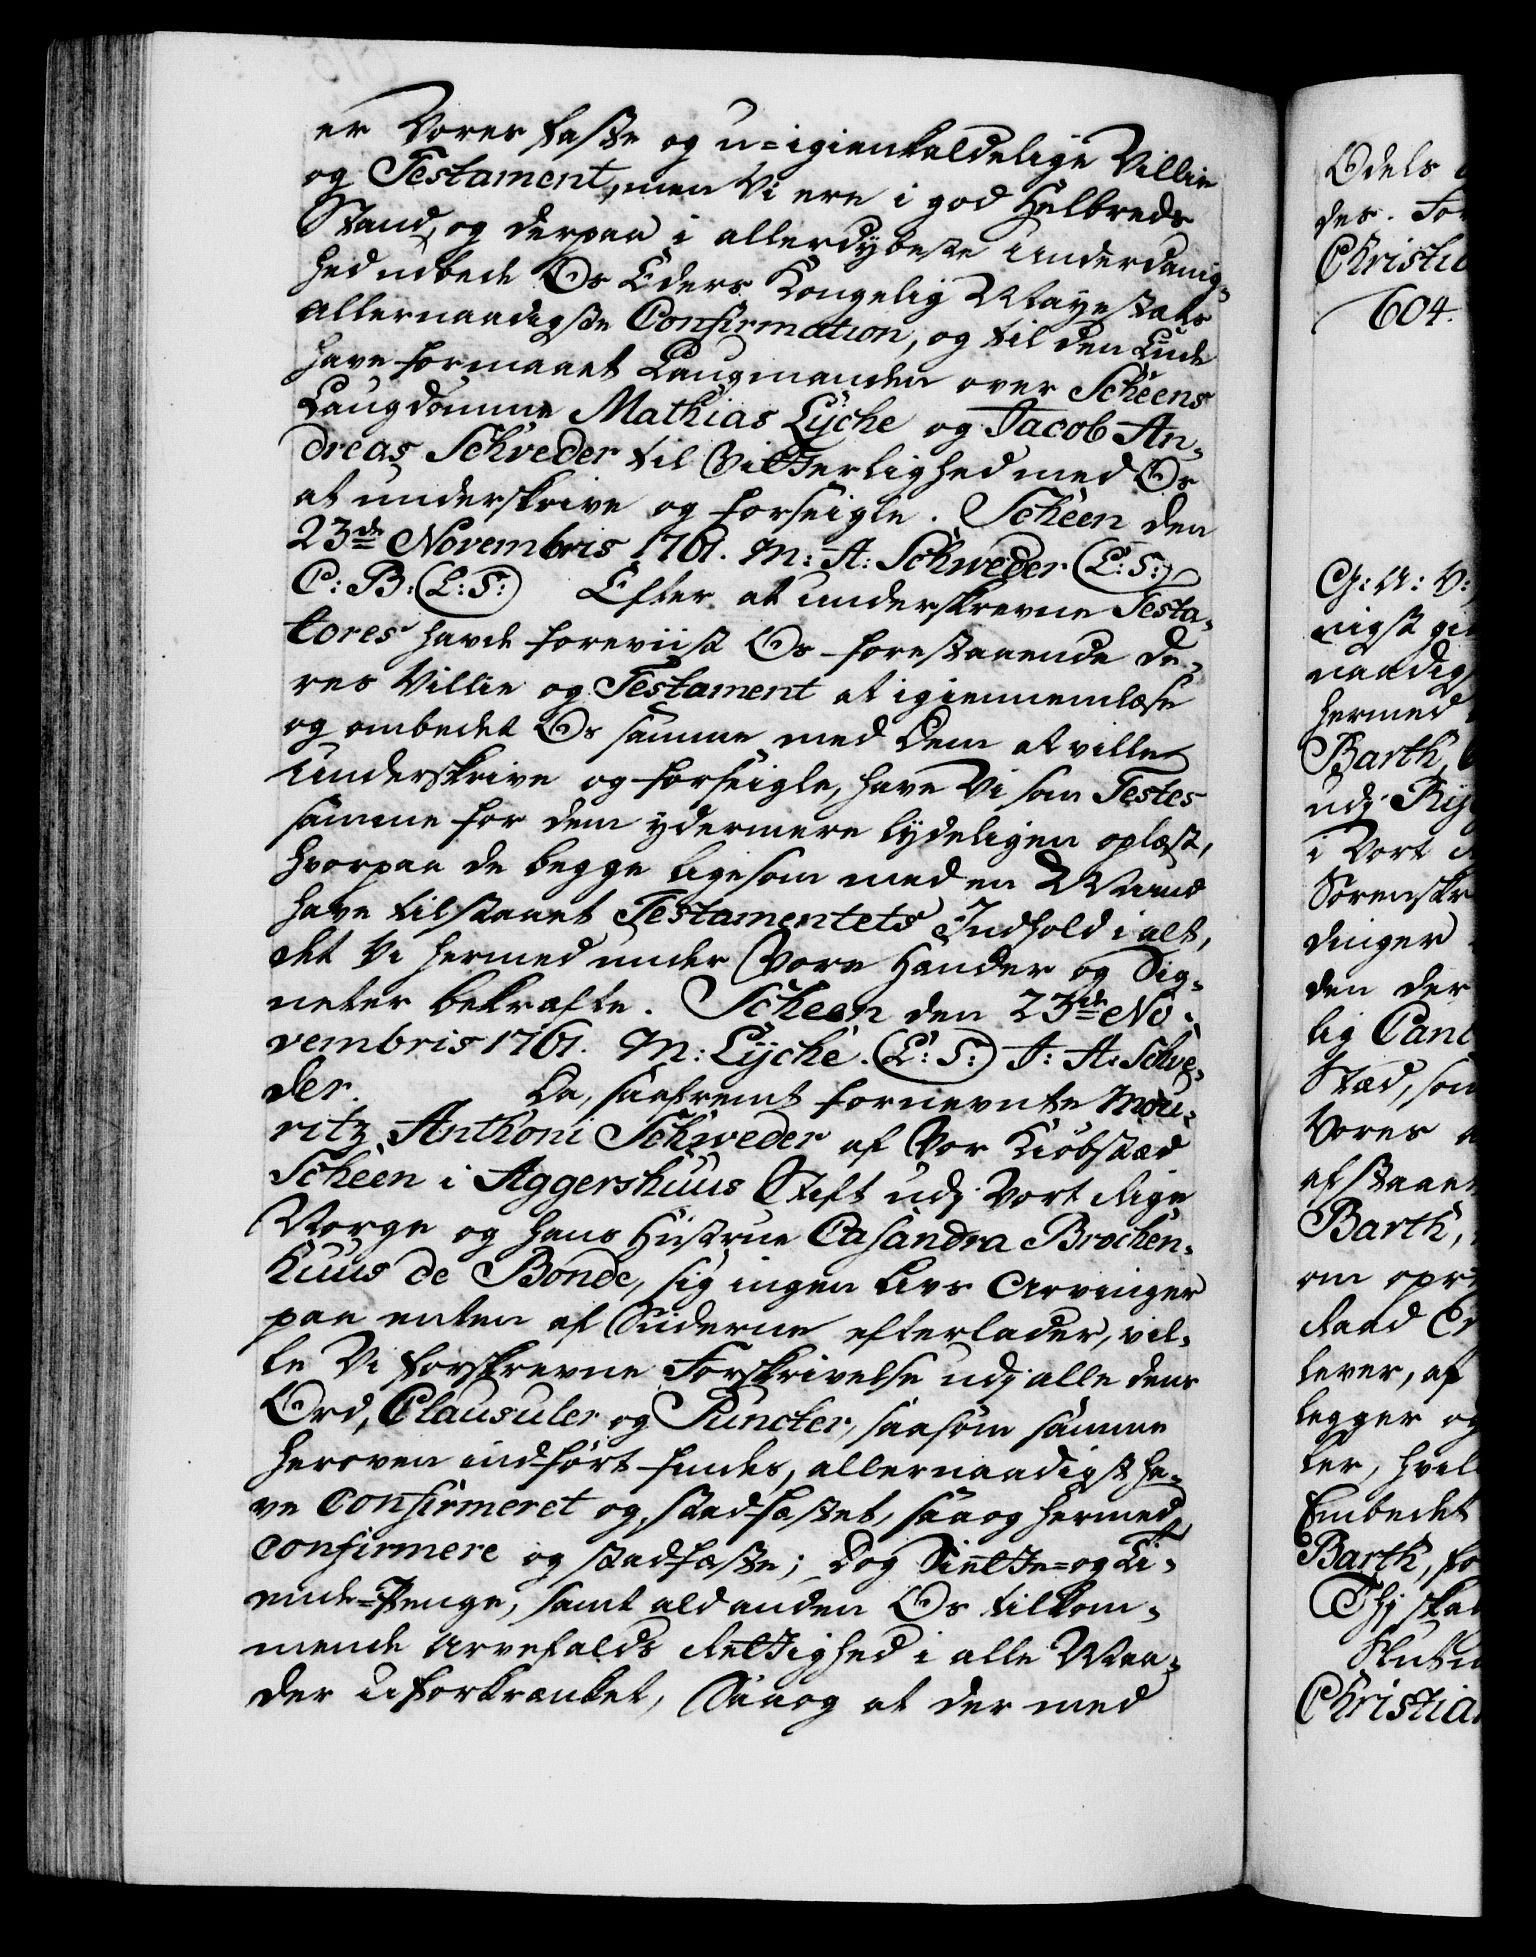 er Vores faste og u=igienkaldelige Villie
og Testament, men Vi ere i god Helbreds
Stand, og derpaa i allerdybeste Underdanig-
hed udbede Os Eders Kongelig Mayestæts
allernaadigste Confirmation, og til den Ende
have formaaet Laugmanden over Scheens
Laugdømme Mathias Lyche og Jacob An-
dreas Schveder til Vitterlighed med Os
at underskrive og forseigle. Scheen den
23de Novembris 1761. M: A: Schweder (L: S:)
C: B: (L: S:) Efter at underskrevne Testa-
tores havde foreviist Os forestaaende de-
res Villie og Testament at igiennemlæse
og ombedet Os samme med Dem at ville
Underskrive og forseigle, have Vi som Testes
samme for dem ydermere lydeligen oplæst,
hvorpaa de begge ligesom med en Mund
have tilstaaet Testamentets Indhold i alt,
det Vi hermed under Vore Hænder og Sig-
neter bekræfte. Scheen den 23de No-
vembris 1761. M: Lyche. (L: S:) J: A: Schve-
der. Da, saafremt fornevnte Mou-
ritz Anthoni Schweder af Vor Kiøbstæd
Scheen i Aggershuus Stift udj Vort Rige
Norge og hans Hustrue Casandra Brochen-
huus de Bonde, sig ingen Livs Arvinger
paa enten af Siderne efterlader, vil-
le Vi forskrevne Forskrivelse udj alle dens
Ord, Clausuler og Puncter, saasom samme
heroven indført findes, allernaadigst ha-
ve Confirmeret og stadfæstet, saa og hermed
confirmere og stadfæste; Dog Siette= og Ti-
ende=Penge, samt ald anden Os tilkom-
mende Arvefalds Rettighed i alle Maa-
der uforkrænket, Saa og at der med
Odels
des. For
Christia
604.
G: A: V:
nigst gi
naadig
hermed
Barth,
udj
i Vort
Sorenskr
dinger
den der
lig Canc
Stæd, som
Vores
afstaaet
Barth,
om opr
Raad
lever, af
legger og
ler, hvil
Embedet
Barth, fo
Thj skal
Christian